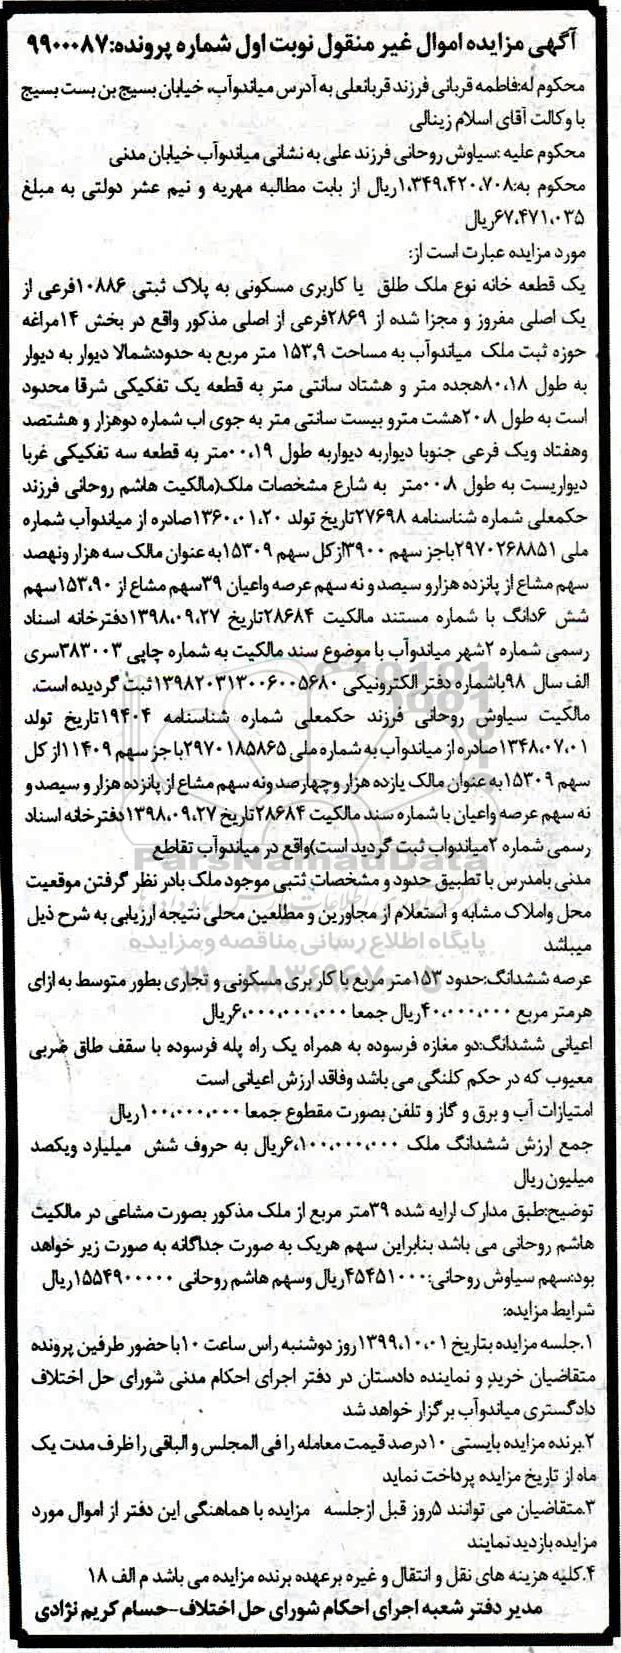 آگهی مزایده اموال غیر منقول نوبت اول شماره پرونده:۹۹۰۰۰۸۷
محکوم له:فاطمه قربانی فرزند قربانعلی به آدرس میاندوآب، خیابان بسیج بن بست بسیج
با وکالت آقای اسلام زینالی
محکوم علیه :سیاوش روحانی فرزند علی به نشانی میاندوآب خیابان مدنی
محکوم به:۱،۳۴۹،۴۲۰،۷۰۸ریال از بابت مطالبه مهریه و نیم عشر دولتی به مبلغ
۶۷،۴۷۱،۰۳۵ریال
مورد مزایده عبارت است از:
یک قطعه خانه نوع ملک طلق یا کاربری مسکونی به پلاک ثبتی ۱۰۸۸۶فرعی از
یک اصلی مفروز و مجزا شده از ۲۸۶۹فرعی از اصلی مذکور واقع در بخش ۱۴مراغه
حوزه ثبت ملک میاندوآب به مساحت ۱۵۳,۹ متر مربع به حدود:شمالا دیوار به دیوار
به طول ۸۰،۱۸هجده متر و هشتاد سانتی متر به قطعه یک تفکیکی شرقا محدود
است به طول ۲۰،۸هشت مترو بیست سانتی متر به جوی اب شماره دوهزار و هشتصد
وهفتاد ویک فرعی جنوبا دیواربه دیواربه طول ۰۰،۱۹متر به قطعه سه تفکیکی غربا
دیواریست به طول ۰۰،۸متر به شارع مشخصات ملک(مالکیت هاشم روحانی فرزند
حکمعلی شماره شناسنامه ۲۷۶۹۸تاریخ تولد ۱۳۶۰،۰۱،۲۰صادره از میاندوآب شماره
ملی ۲۹۷۰۲۶۸۸۵۱باجز سهم ۳۹۰۰ازکل سهم ۱۵۳۰۹به عنوان مالک سه هزار ونهصد
سهم مشاع از پانزده هزارو سیصد و نه سهم عرصه واعیان ۳۹سهم مشاع از ۱۵۳،۹۰سهم
شش ۶دانگ با شماره مستند مالکیت ۲۸۶۸۴تاریخ ۱۳۹۸،۰۹،۲۷دفترخانه اسناد
رسمی شماره ۲شهر میاندوآب با موضوع سند مالکیت به شماره چاپی ۳۸۳۰۰۳سری
الف سال ۹۸باشماره دفتر الکترونیکی ۱۳۹۸۲۰۳۱۳۰۰۶۰۰۵۶۸۰ثبت گردیده است.
مالکیت سیاوش روحانی فرزند حکمعلی شماره شناسنامه ۱۹۴۰۴تاریخ تولد
۱۳۴۸،۰۷،۰۱صادره از میاندوآب به شماره ملی ۲۹۷۰۱۸۵۸۶۵باجز سهم ۱۱۴۰۹از کل
سهم ۱۵۳۰۹به عنوان مالک یازده هزار وچهارصدونه سهم مشاع از پانزده هزار و سیصد و
نه سهم عرصه واعیان با شماره سند مالکیت ۲۸۶۸۴تاریخ ۱۳۹۸،۰۹،۲۷دفترخانه اسناد
رسمی شماره ۲میاندواب ثبت گردید است)واقع در میاندوآب تقاطع
مدنی بامدرس با تطبیق حدود و مشخصات ثتبی موجود ملک بادر نظر گرفتن موقعیت
محل واملاک مشابه و استعلام از مجاورین و مطلعین محلی نتیجه ارزیابی به شرح ذیل
میباشد
عرصه ششدانگ:حدود ۱۵۳متر مربع با کاربری مسکونی و تجاری بطور متوسط به ازای
هرمتر مربع ۴۰،۰۰۰،۰۰۰ریال جمعا ۶،۰۰۰،۰۰۰،۰۰۰ریال
اعیانی ششدانگ:دو مغازه فرسوده به همراه یک راه پله فرسوده با سقف طاق ضربی
معیوب که در حکم کلنگی می باشد وفاقد ارزش اعیانی است
امتیازات آب و برق و گاز و تلفن بصورت مقطوع جمعا ۱۰۰،۰۰۰،۰۰۰ریال
جمع ارزش ششدانگ ملک ۶،۱۰۰،۰۰۰،۰۰۰ریال به حروف شش میلیارد ویکصد
میلیون ریال
توضیح:طبق مدارک ارایه شده ۳۹متر مربع از ملک مذکور بصورت مشاعی در مالکیت
هاشم روحانی می باشد بنابراین سهم هریک به صورت جداگانه به صورت زیر خواهد
بود:سهم سیاوش روحانی:۴۵۴۵۱۰۰۰ریال وسهم هاشم روحانی ۱۵۵۴۹۰۰۰۰۰ریال
شرایط مزایده:
۱.جلسه مزایده بتاریخ ۱۳۹۹،۱۰،۰۱روز دوشنبه راس ساعت ۱۰باحضور طرفین پرونده
متقاضیان خرید و نماینده دادستان در دفتر اجرای احکام مدنی شورای حل اختلاف
دادگستری میاندوآب برگزار خواهد شد
۲.برنده مزایده بایستی ۱۰درصد قیمت معامله را فی المجلس و الباقی را ظرف مدت یک
ماه از تاریخ مزایده پرداخت نماید
۳.متقاضیان می توانند ۵روز قبل ازجلسه مزایده با هماهنگی این دفتر از اموال مورد
مزایده بازدید نمایند
۴.کلیه هزینه های نقل و انتقال و غیره برعهده برنده مزایده می باشد م الف ۱۸
مدیر دفتر شعبه اجرای احکام شورای حل اختلاف-حسام کریم نژادی
ParsNamadData
پایگاه اطلاع رسانی مناقصه و مزایده